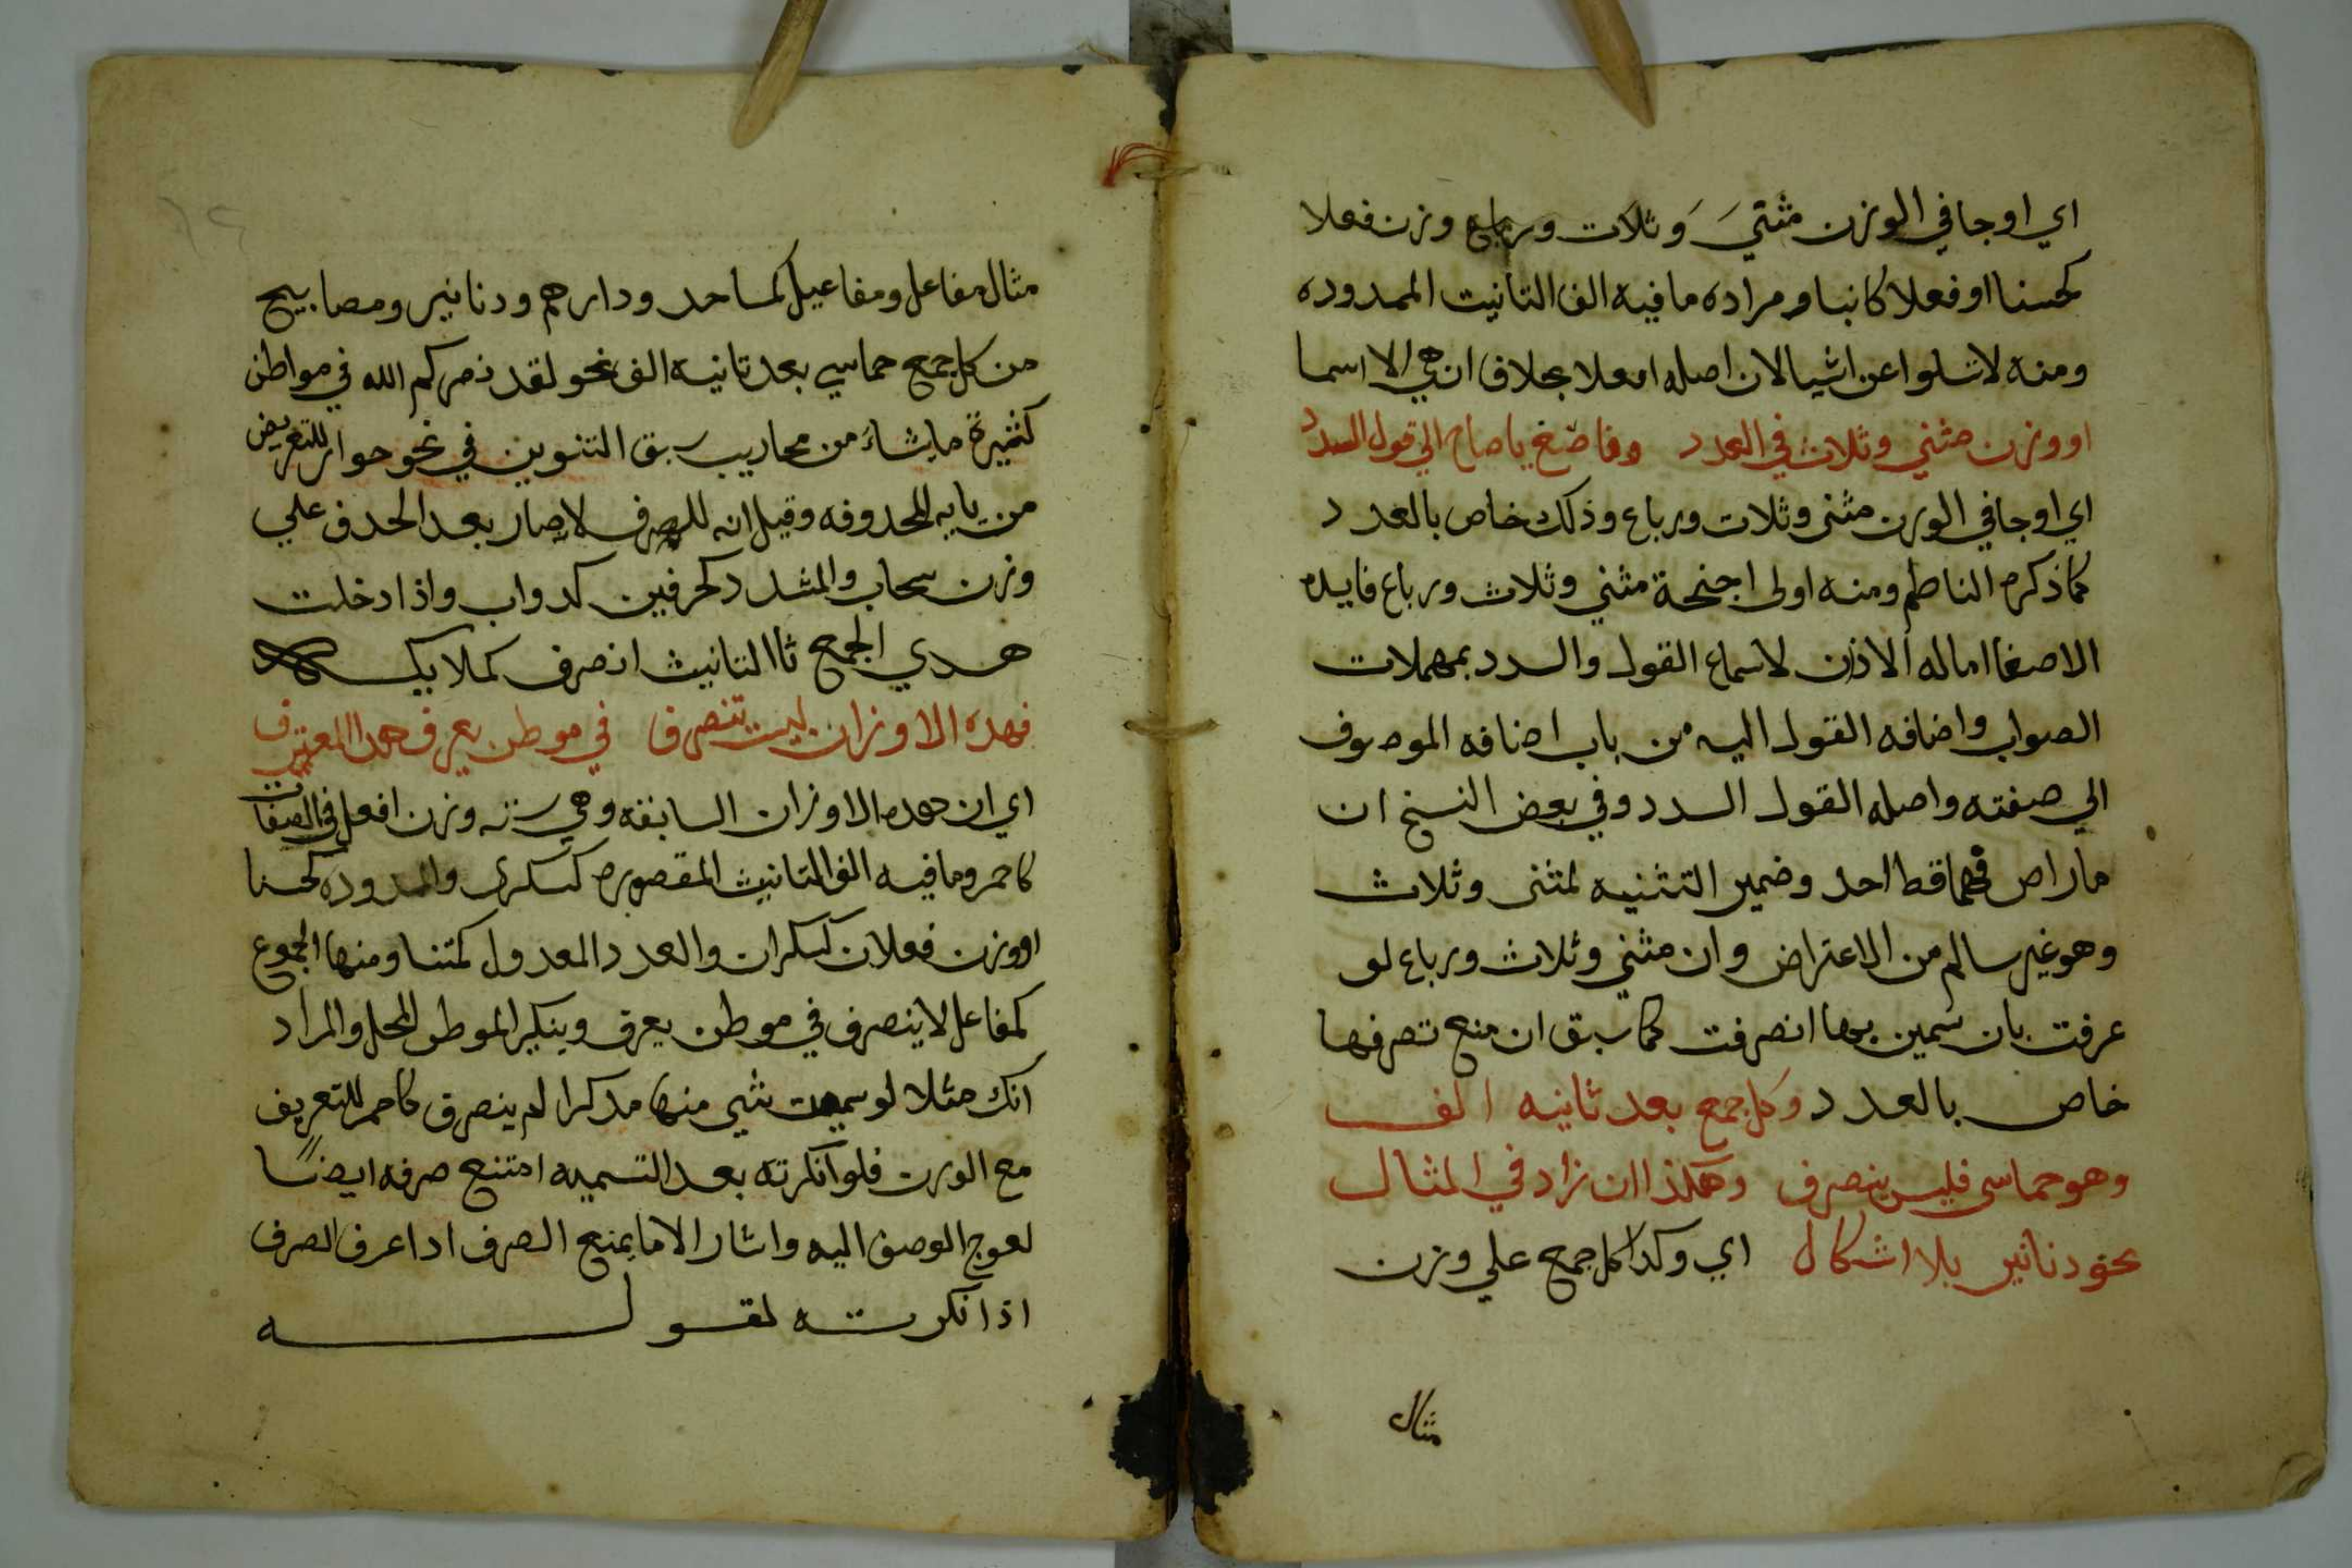 اي او جا في الوزن مثنيَ وَثلاث ورباع وزن فعلا
كحسنا او فعلا كانبيا ومراده ما فيه الف التانيت الممدوده
ومنه لا تسلوا عن اشيا لان اصله افعلا بخلاف ان هي الا اسما
او وزن مثني وثلاث في العدد وفاصغ يا صاح الي قول السدد
اي او جا في الوزن مثنى وثلاث ورباع وذلك خاص بالعدد
كما ذكره الناظم ومنه اولى اجنحة مثني وثلاث ورباع فايده
الاصغا اماله الاذن لاسماع القول والسدد بمهملات
الصواب واضافه القول اليه من باب اضافه الموصوف
الي صفته واصله القول السدد وفي بعض النسخ ان
ما راص فيهما قط احد وضمير التثنيه لمثنى وثلاث
وهو غير سالم من الاعتراض وان مثني وثلاث ورباع لو
عرفت بان سمين بها انصرفت كما سبق ان منع تصرفها
خاص بالعدد وكل جمع بعد ثانيه الف
وهو خماسي فليس ينصرف وهكذا ان زاد في المثال
نحو دنانير بلا اشكال اي وكدا كل جمع علي وزن
مثال
مثال مفاعل ومفاعيل كمساجد ودارهم ودنانير ومصابيح
من كل جمع خماسي بعد تانيه الف نحو لقد نصركم الله في مواطن
كثيرة ما يشاءُ من محاريب سبق التنوين في نحو جوار للتعويض
من يايه المحدوفه وقيل انه للصرف لا صار بعد الحدف علي
وزن سحاب والمشدد كحرفين كدواب واذا دخلت
هدي الجمع تا التانيث انصرف كملايكه
فهده الاوزان ليست تنصرف في موطن يعرف هدا المعترف
اي ان هده الاوزان السابقه وهي سته وزن افعل في الصفات
كاحمر وما فيه الف التانيث المقصوره كسكرى والممدوده كحسنا
او وزن فعلان كسكران والعدد المعدول كمثنا ومنها الجموع
كمفاعل لا ينصرف في موطن يعرف وينكير الموطن المحل والمراد
انك مثلا لو سميت بشي منها مدكرا لم ينصرف كاحمر للتعريف
مع الوزن فلو انكرته بعد التسميه امتنع صرفه ايضًا
لعوج الوصف اليه واشار الا ما يمنع الصرف ادا عرف الصرف
اذا نكرته لقوله